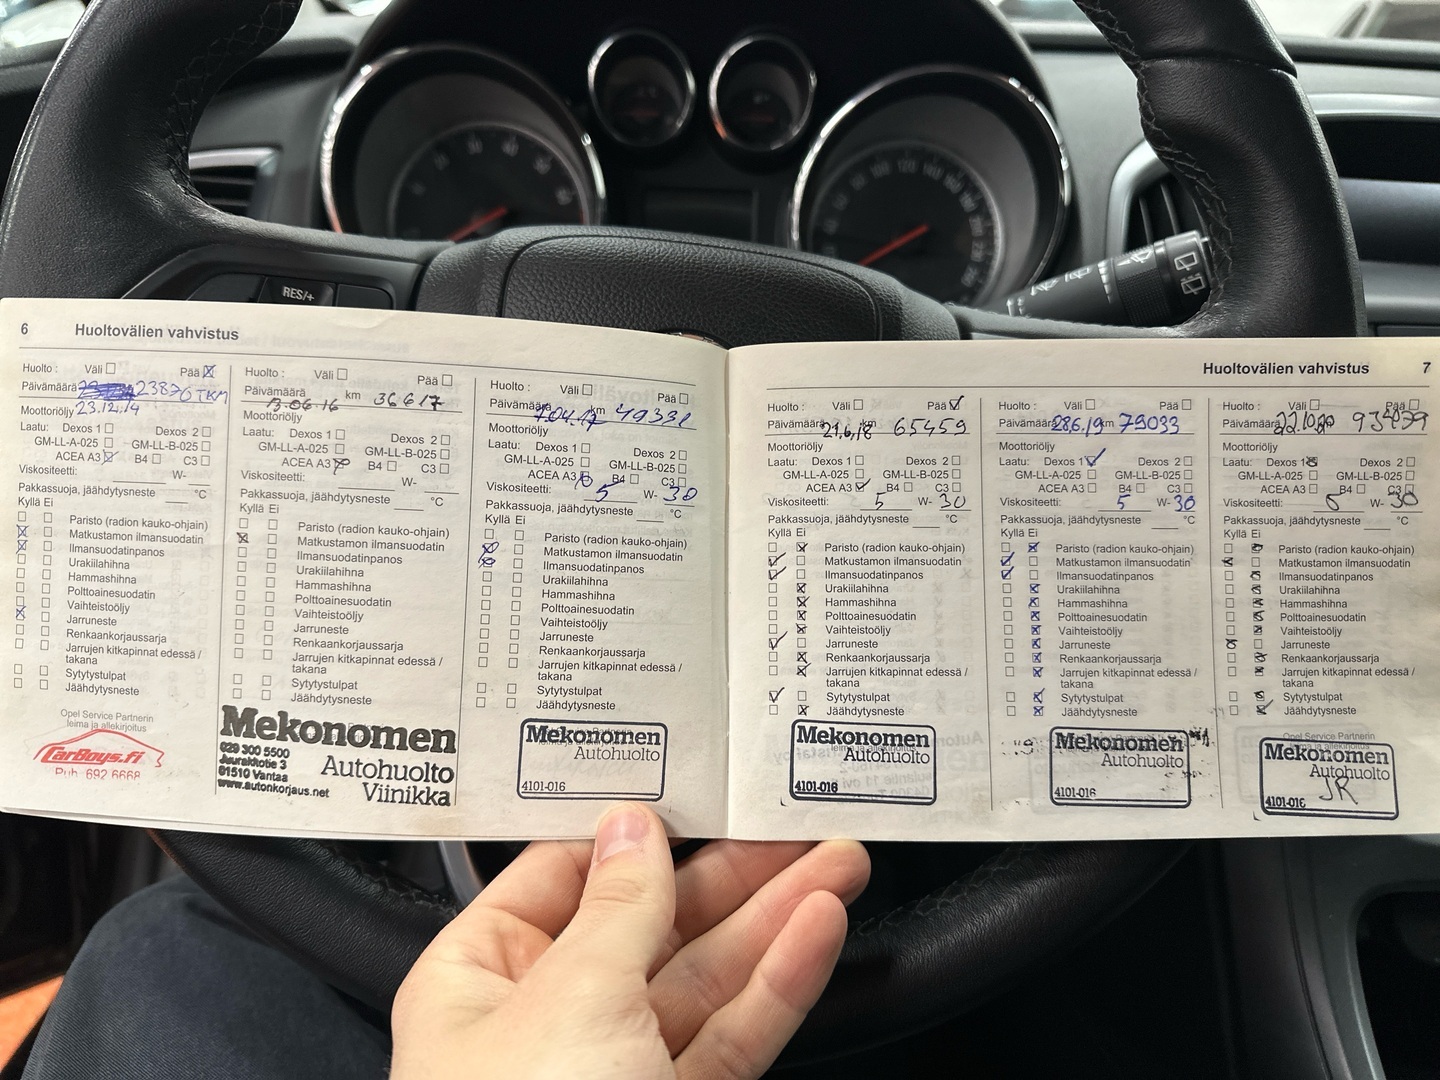 RES/+
6 Huoltovälien vahvistus
Huolto : Väli Pää
Päivämäärä 23876 TKM
Moottoriöljy 23.12.14
Laatu: Dexos 1 Dexos 2
GM-LL-A-025 GM-LL-B-025
ACEA A3 B4 C3
Viskositeetti: W-
Pakkassuoja, jäähdytysneste °C
Kyllä Ei
Paristo (radion kauko-ohjain)
Matkustamon ilmansuodatin
Ilmansuodatinpanos
Urakiilahihna
Hammashihna
Polttoainesuodatin
Vaihteistoöljy
Jarruneste
Renkaankorjaussarja
Jarrujen kitkapinnat edessä /
takana
Sytytystulpat
Jäähdytysneste
Opel Service Partnerin
leima ja allekirjoitus
CarBoys.fi
Puh. 692 6668
Huolto : Väli Pää
Päivämäärä km 36617
13.06.16
Moottoriöljy
Laatu: Dexos 1 Dexos 2
GM-LL-A-025 GM-LL-B-025
ACEA A3 B4 C3
Viskositeetti: W-
Pakkassuoja, jäähdytysneste °C
Kyllä Ei
Paristo (radion kauko-ohjain)
Matkustamon ilmansuodatin
Ilmansuodatinpanos
Urakiilahihna
Hammashihna
Polttoainesuodatin
Vaihteistoöljy
Jarruneste
Renkaankorjaussarja
Jarrujen kitkapinnat edessä /
takana
Sytytystulpat
Jäähdytysneste
Mekonomen
029 300 5500
Jaurakkotie 3
01510 Vantaa
www.autonkorjaus.net
Autohuolto
Viinikka
Huolto : Väli Pää
Päivämäärä km 49331
Moottoriöljy
Laatu: Dexos 1 Dexos 2
GM-LL-A-025 GM-LL-B-025
ACEA A3 B4 C3
Viskositeetti: 5 W- 30
Pakkassuoja, jäähdytysneste °C
Kyllä Ei
Paristo (radion kauko-ohjain)
Matkustamon ilmansuodatin
Ilmansuodatinpanos
Urakiilahihna
Hammashihna
Polttoainesuodatin
Vaihteistoöljy
Jarruneste
Renkaankorjaussarja
Jarrujen kitkapinnat edessä /
takana
Sytytystulpat
Jäähdytysneste
Mekonomen
Autohuolto
4101-016
Huoltovälien vahvistus 7
Huolto : Väli Pää
Päivämäärä 21.6.18 km 65459
Moottoriöljy
Laatu: Dexos 1 Dexos 2
GM-LL-A-025 GM-LL-B-025
ACEA A3 B4 C3
Viskositeetti: 5 W- 30
Pakkassuoja, jäähdytysneste °C
Kyllä Ei
Paristo (radion kauko-ohjain)
Matkustamon ilmansuodatin
Ilmansuodatinpanos
Urakiilahihna
Hammashihna
Polttoainesuodatin
Vaihteistoöljy
Jarruneste
Renkaankorjaussarja
Jarrujen kitkapinnat edessä /
takana
Sytytystulpat
Jäähdytysneste
Mekonomen
Autohuolto
4101-016
Huolto : Väli Pää
Päivämäärä 28.6.19 km 79033
Moottoriöljy
Laatu: Dexos 1 Dexos 2
GM-LL-A-025 GM-LL-B-025
ACEA A3 B4 C3
Viskositeetti: 5 W- 30
Pakkassuoja, jäähdytysneste °C
Kyllä Ei
Paristo (radion kauko-ohjain)
Matkustamon ilmansuodatin
Ilmansuodatinpanos
Urakiilahihna
Hammashihna
Polttoainesuodatin
Vaihteistoöljy
Jarruneste
Renkaankorjaussarja
Jarrujen kitkapinnat edessä /
takana
Sytytystulpat
Jäähdytysneste
Mekonomen
Autohuolto
4101-016
Huolto : Väli Pää
Päivämäärä
Moottoriöljy
Laatu: Dexos 1 Dexos 2
GM-LL-A-025 GM-LL-B-025
ACEA A3 B4 C3
Viskositeetti: 5 W- 30
Pakkassuoja, jäähdytysneste °C
Kyllä Ei
Paristo (radion kauko-ohjain)
Matkustamon ilmansuodatin
Ilmansuodatinpanos
Urakiilahihna
Hammashihna
Polttoainesuodatin
Vaihteistoöljy
Jarruneste
Renkaankorjaussarja
Jarrujen kitkapinnat edessä /
takana
Sytytystulpat
Jäähdytysneste
Opel Service Partnerin
leima ja allekirjoitus
Mekonomen
Autohuolto
JR
4101-016